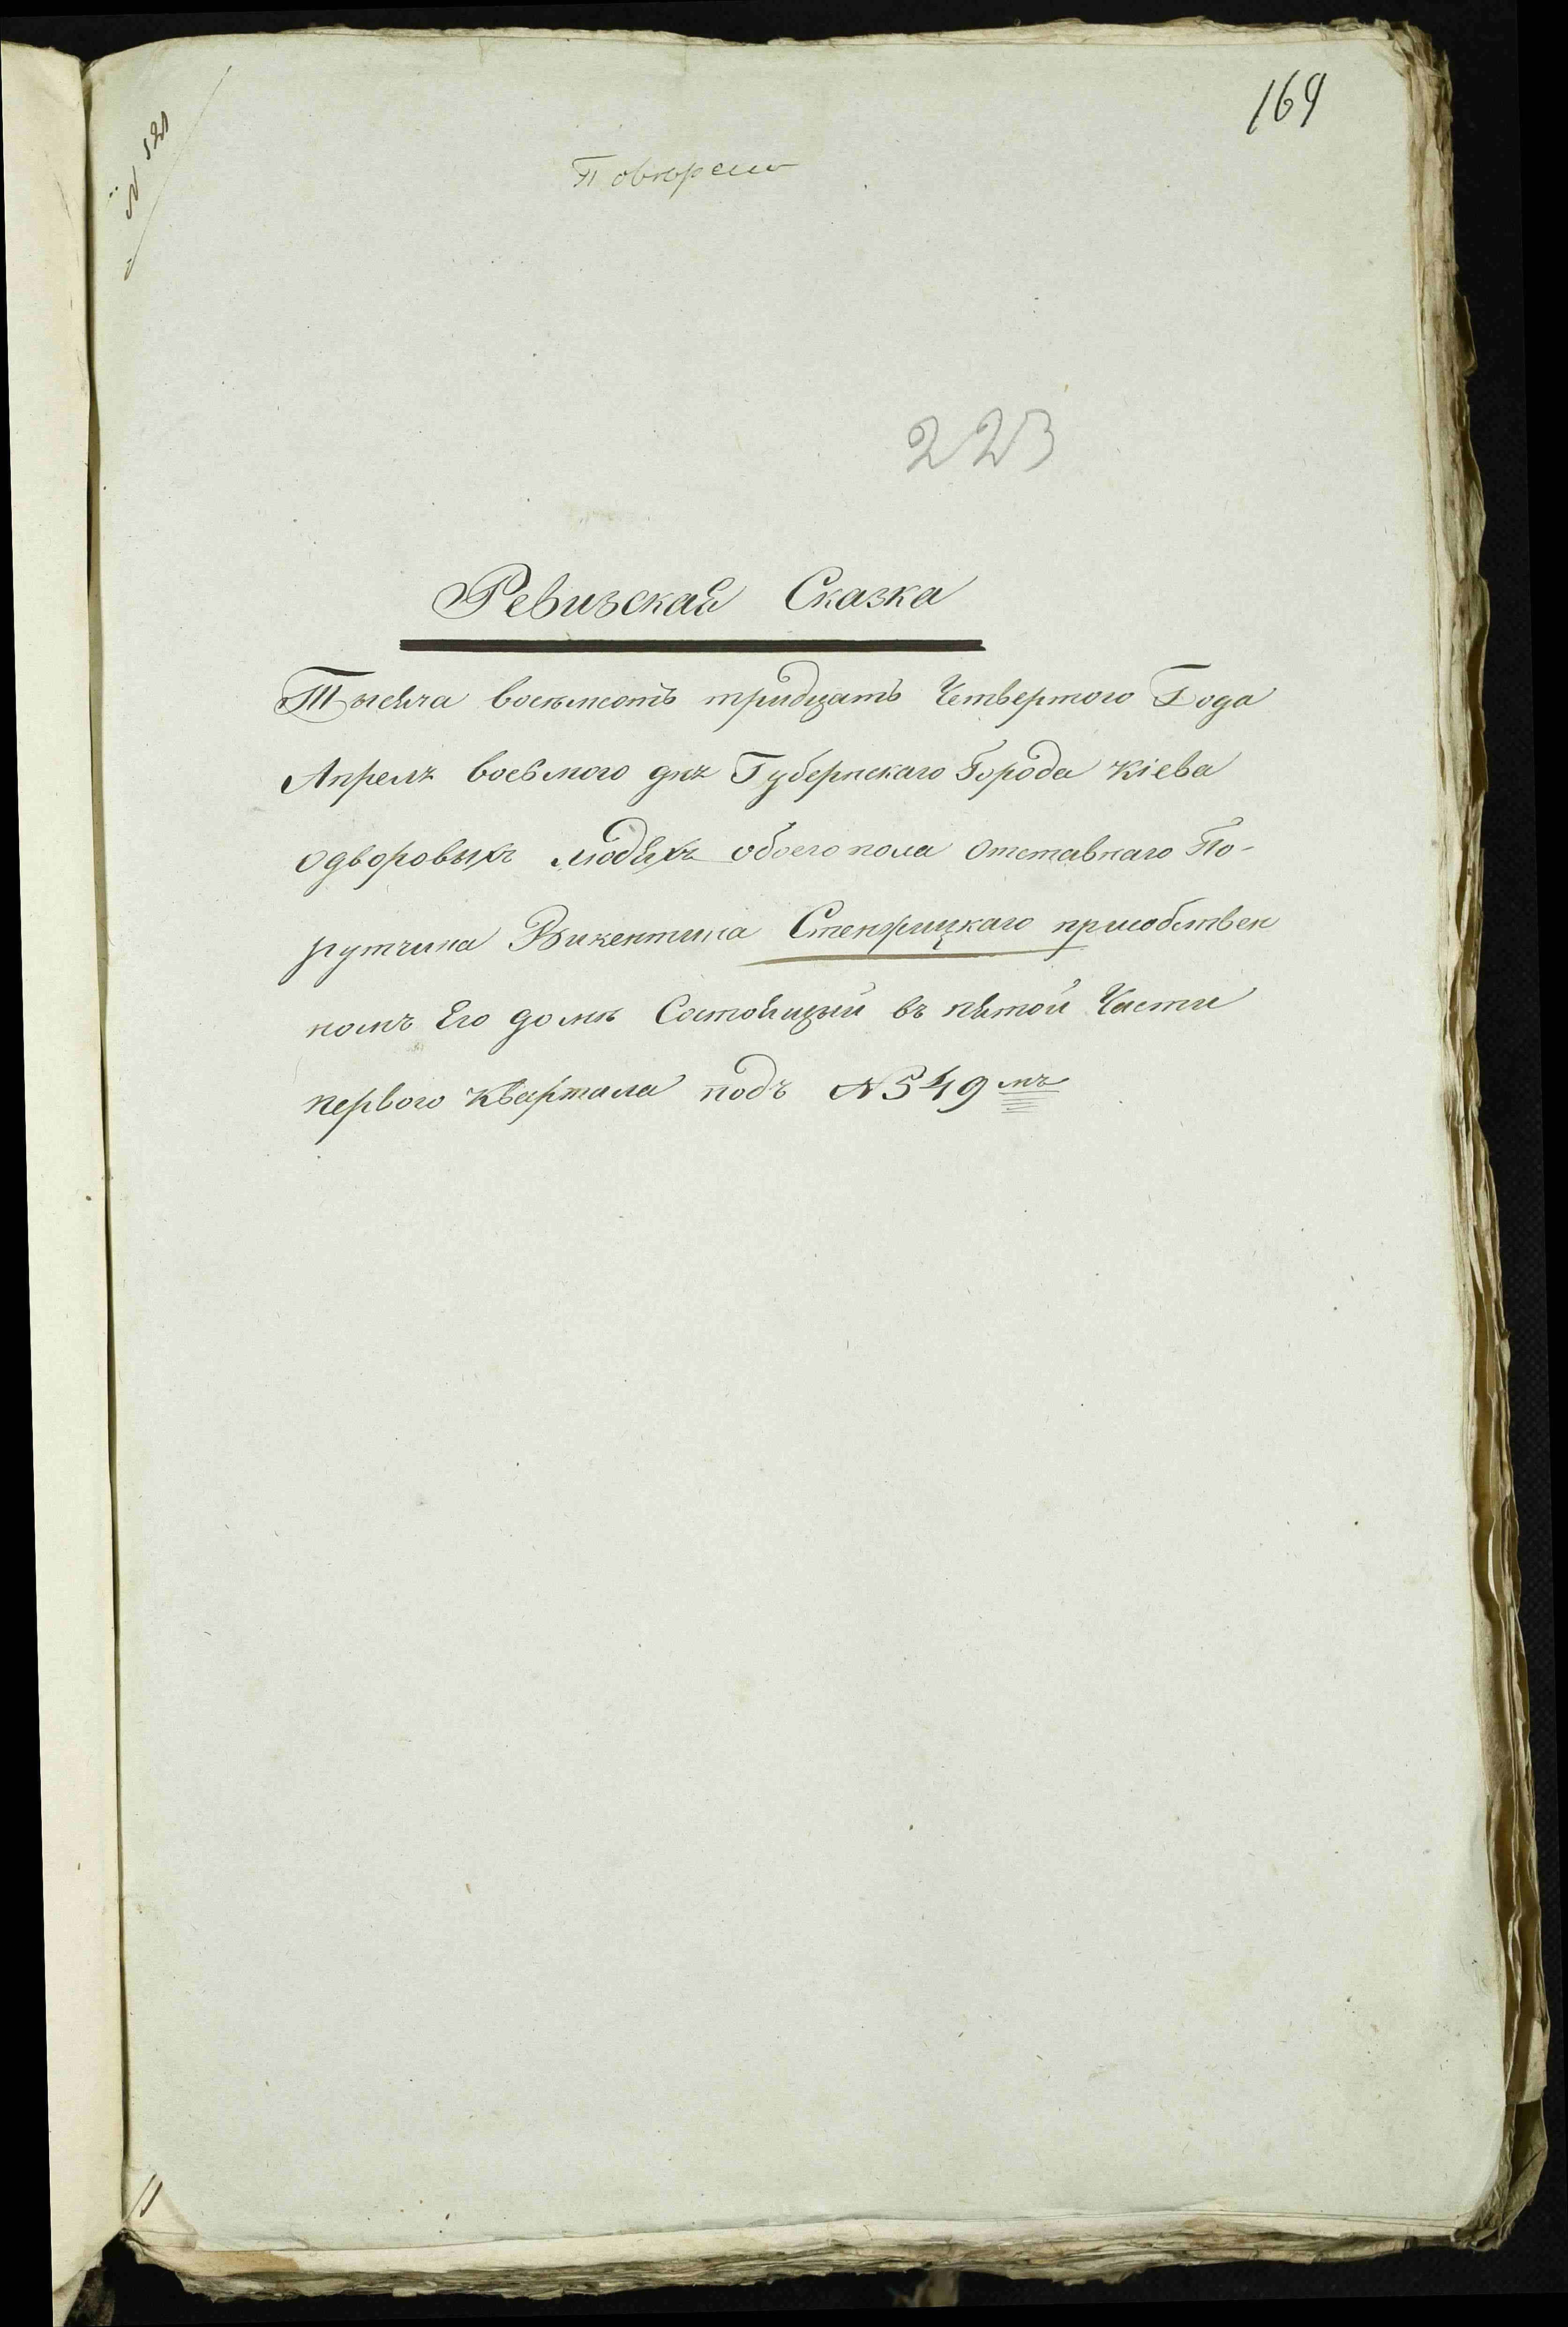 169
№ 521
Повѣрено
223
Ревизская Сказка
Тысяча восѣмсотъ тридцать Четвертого Года
Апреля восьмого дня Губернскаго Города Кіева
одворовыхъ людяхъ обоего пола Отставнаго По-
рутчика Викентика Стенжицкаго присобствен
номъ Его домѣ Состоящій въ пятой Части
первого Квартала подъ №549мъ